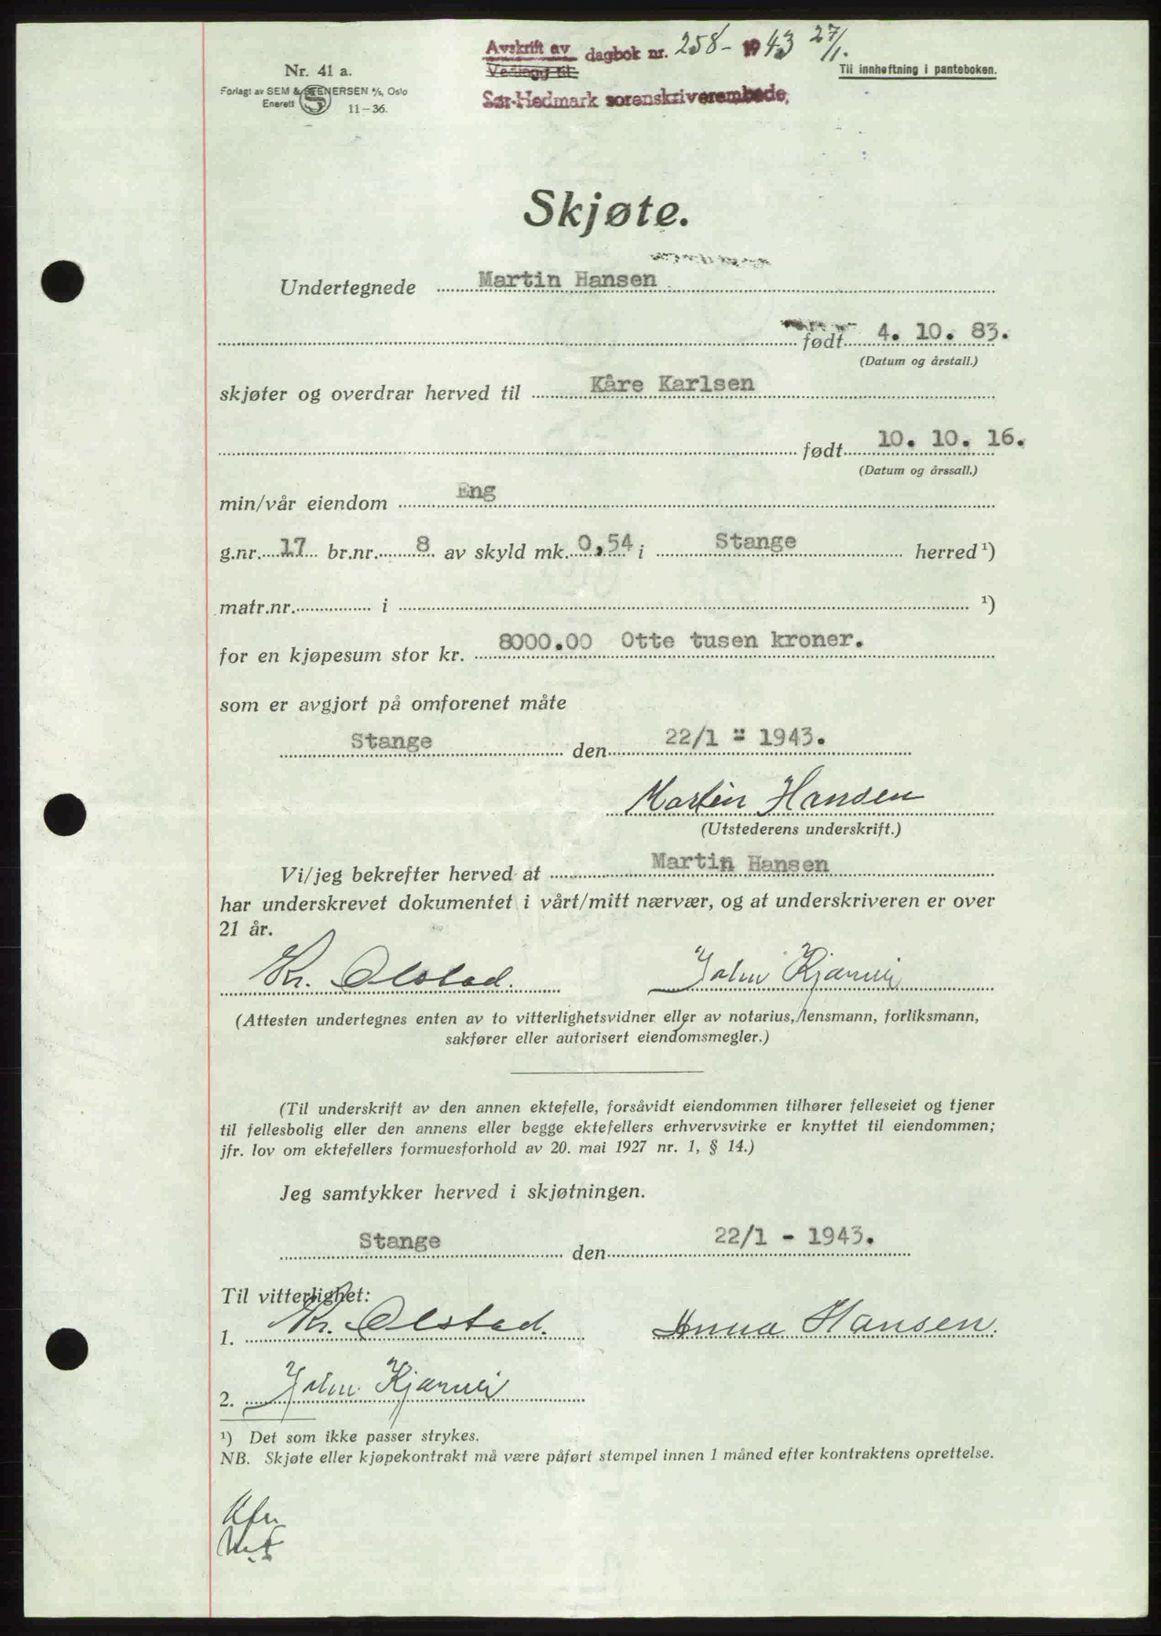 Avskrift av dagbok nr. 258 - 1943 27/1.
Vedlegg til
Til innheftning i panteboken.
Nr. 41 a.
Forlagt av SEM & STENERSEN A/S, Oslo
Enerett 11-36.
Sør-Hedmark sorenskriverembede,
Skjøte.
Undertegnede Martin Hansen
født 4. 10. 83.
(Datum og årstall.)
skjøter og overdrar herved til Kåre Karlsen
født 10. 10. 16.
(Datum og årssall.)
min/vår eiendom Eng
g.nr. 17 br.nr. 8 av skyld mk. 0,54 i Stange herred ¹)
matr.nr. i ¹)
for en kjøpesum stor kr. 8000.00 Otte tusen kroner.
som er avgjort på omforenet måte
Stange den 22/1 - 1943.
Martin Hansen
(Utstederens underskrift.)
Vi/jeg bekrefter herved at Martin Hansen
har underskrevet dokumentet i vårt/mitt nærvær, og at underskriveren er over
21 år.
Kr. Olstad. John Kjærnli
(Attesten undertegnes enten av to vitterlighetsvidner eller av notarius, lensmann, forliksmann,
sakfører eller autorisert eiendomsmegler.)
(Til underskrift av den annen ektefelle, forsåvidt eiendommen tilhører felleseiet og tjener
til fellesbolig eller den annens eller begge ektefellers erhvervsvirke er knyttet til eiendommen;
jfr. lov om ektefellers formuesforhold av 20. mai 1927 nr. 1, § 14.)
Jeg samtykker herved i skjøtningen.
Stange den 22/1 - 1943.
Til vitterlighet:
1. Kr. Olstad. Anna Hansen.
2. John Kjærnli
¹) Det som ikke passer strykes.
NB. Skjøte eller kjøpekontrakt må være påført stempel innen 1 måned efter kontraktens oprettelse.